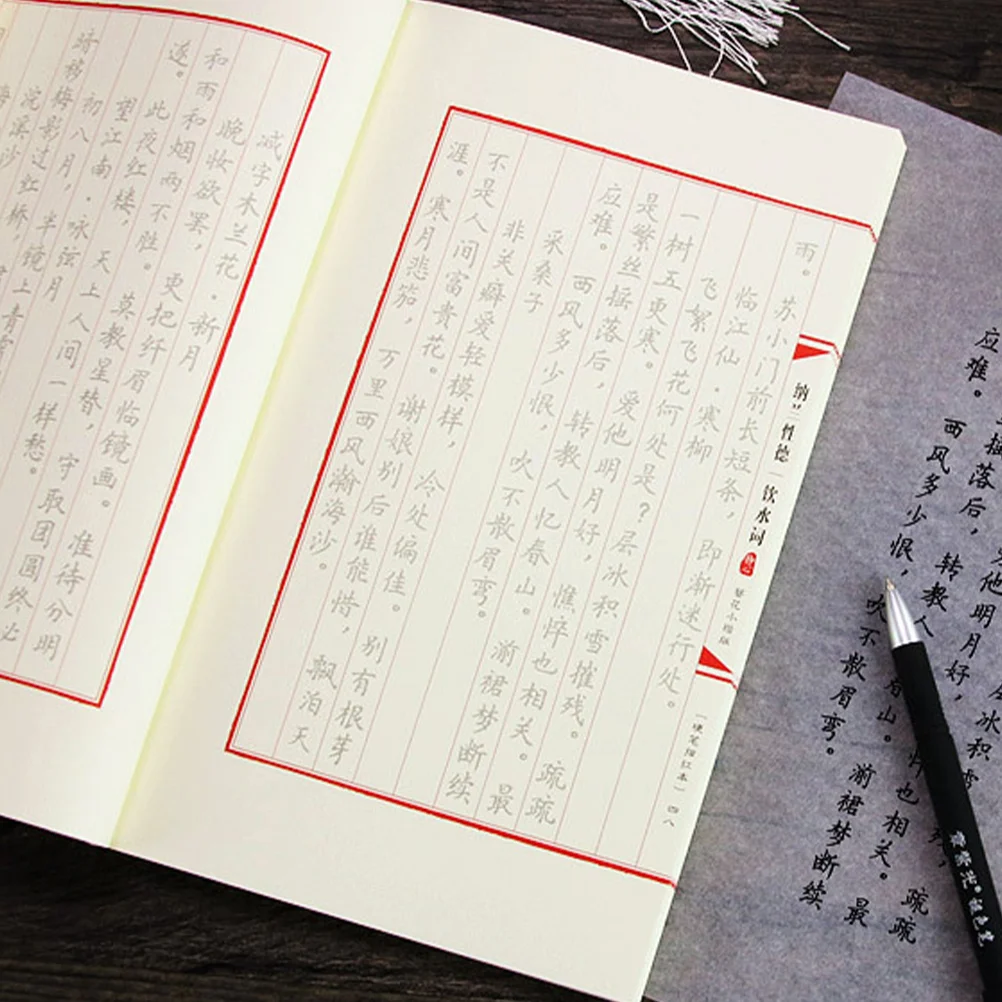 雨。苏小门前长短条，即渐迷行处。
临江仙·寒柳
飞絮飞花何处是？层冰积雪摧残。疏疏
一树五更寒。爱他明月好，憔悴也相关。最
是繁丝摇落后，转教人忆春山。湔裙梦断续
应难。西风多少恨，吹不散眉弯。
采桑子
非关癖爱轻模样，冷处偏佳。别有根芽
不是人间富贵花。谢娘别后谁能惜，飘泊天
涯。寒月悲笳，万里西风瀚海沙。
纳兰性德｜饮水词
簪花小楷版
（硬笔描红本）四八
减字木兰花·新月
晚妆欲罢，更把纤眉临镜画。准待分明
和雨和烟两不胜。莫教星替，守取团圆终必
遂。此夜红楼，天上人间一样愁。
望江南·咏弦月
初八月，半镜上青霄
暗移梅影过红桥，
浣溪沙
层冰积雪 残，疏疏
他明月好， 悴也相关。最
摇落后，转教人 春山。湔裙梦断续
应难。西风多少恨，吹不散眉弯。